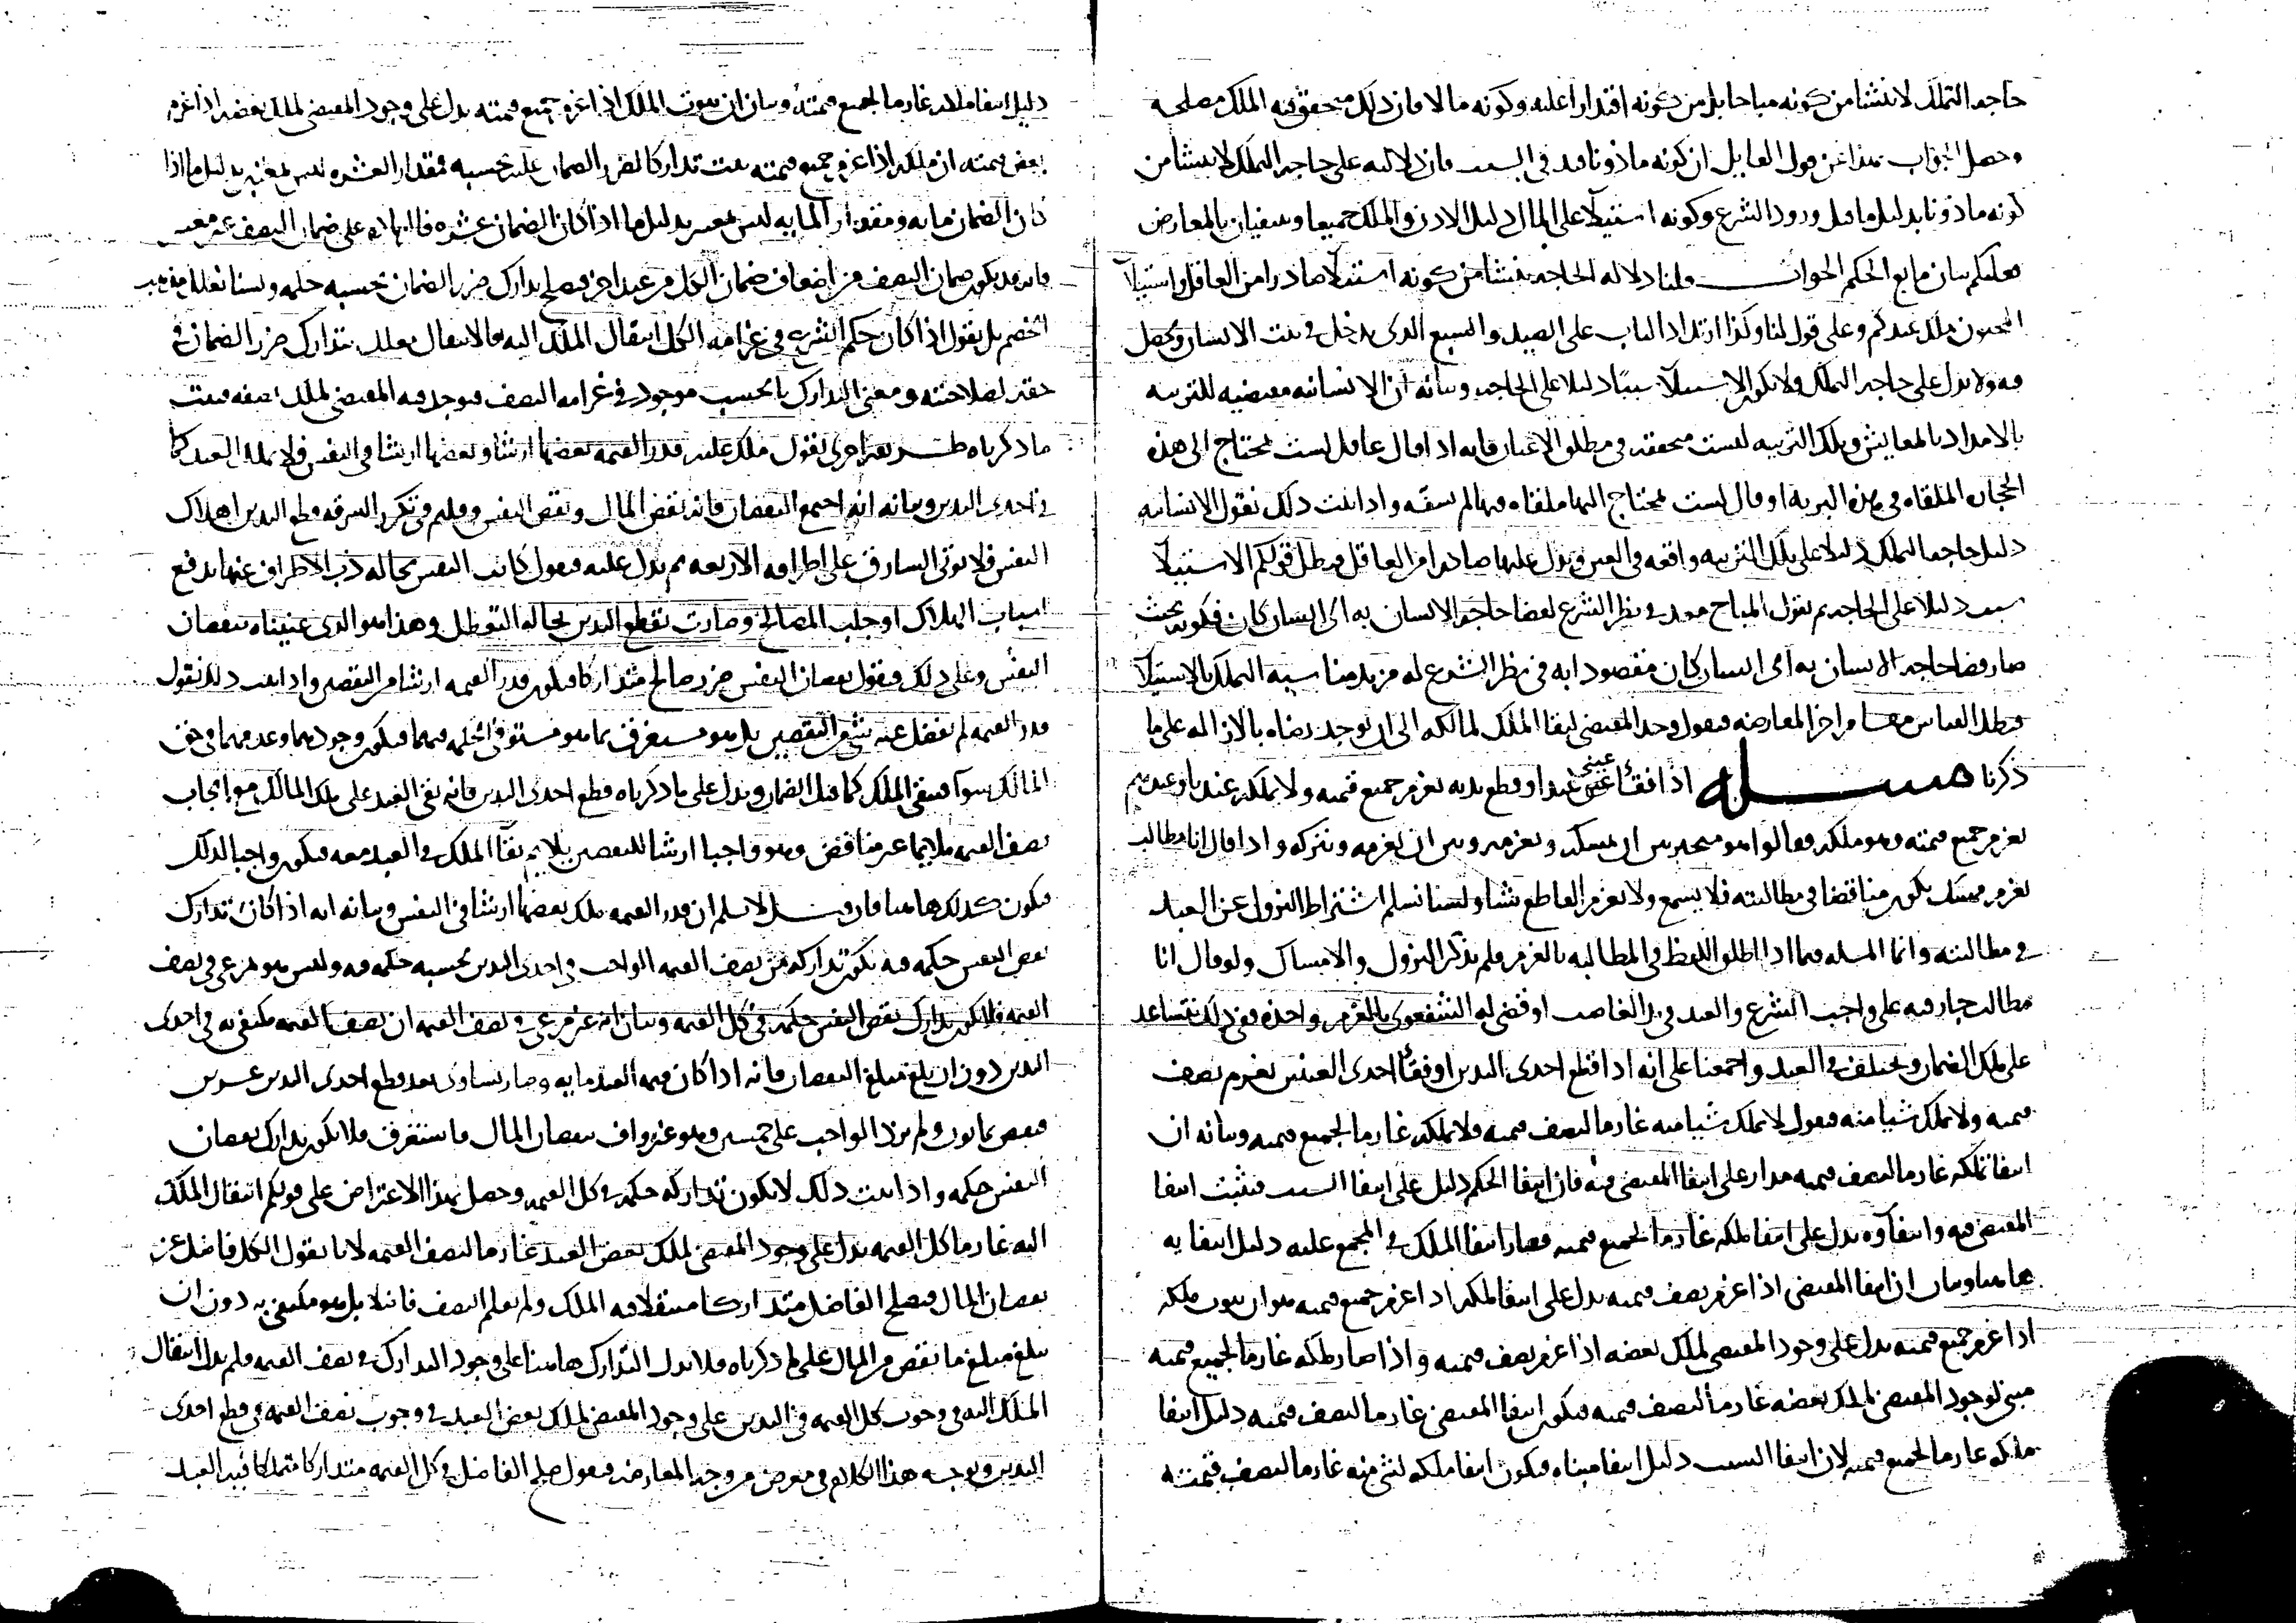 حاجه التملك لا ينشا من كونه مباحا بل من كونه اقتدارا عليه وكونه مالا فان ذلك يتحقق فيه الملك مصلحه
وحصل الجواب بهذا عن قول القايل ان كونه ماذونا فيه في السبب فان دلالته على حاجه التملك لا ينشا من
كونه ماذونا بدليل ما قبل ورود الشرع وكونه استيلآ على المال دليل الاذن والملك جميعا وينفيان بالمعارض
فعليكم بيان مانع الحكم الجواب قلنا دلاله الحاجه ينشا من كونه استيلآ صادرا من العاقل واستيلآ
المجنون ملك عندكم وعلى قول لنا وكذا ارتداد الباب على الصيد والسبع الذي يدخل في بيت الانسان ويحصل
فيه ولا يدل على حاجه التملك ولا يكون الاستيلآ سببا دليلا على الحاجه وبيانه ان الانسانيه مقتضيه للتربيه
بالامداد بالمعايش وتلك التربيه ليست متحققه في مطلق الاعيان فانه اذا قال عاقل لست بمحتاج الى هذه
الحجاره الملقاه في هذه البريه او قال لست بمحتاج اليها ملقاه فيها لم يسفه واذا ثبت ذلك نقول الانسانيه
دليل حاجه التملك دليلا على تلك التربيه واقعه في العين ويدل عليها صادرا من العاقل فبطل قولكم الاستيلآ
سبب دليلا على الحاجه ثم نقول المباح معد في نظر الشرع لقضا حاجه الانسان به اي انسان كان فكونه بحيث
صار قضا حاجه الانسان به اي انسان كان مقصودا به في نظر الشرع له مزيد مناسبه التملك بالاستيلآ
فبطل القياس معنا واخر المعارضه فنقول وجد المقتضي لبقا الملك لمالكه الى ان يوجد رضاه بالازاله على ما
ذكرنا مسـله اذا فقأ عيني عبد او قطع يديه يغرم جميع قيمته ولا يملكه عندنا وعندهم
يغرم جميع قيمته وهو ملكه وقالوا هو متخير بين ان يمسكه ويغرمه وبين ان يغرمه ويتركه واذا قال انا مطالب
بغرم مهسك يكون مناقضا في مطالبته فلا يسمع ولا يغرم القاطع شيا ولسنا نسلم اشتراط النزول عن العبد
في مطالبته وانما المسله فيما اذا اطلق اللفظ في المطالبه بالغرم ولم يذكر النزول والامساك ولو قال انا
مطالب جار فيه على واجب الشرع والعبد في يد الغاصب او قضى له الشفعوي بالغرم واحده ففي ذلك نتساعد
على ملك الضمان ويختلف في العبد واجمعنا على انه اذا قطع احدى اليدين او فقأ احدى العينين يغرم نصف
قيمته ولا يملك شيا منه فنقول لا يملك شيا منه غارما لنصف قيمته فلا يملكه غارما لجميع قيمته وبيانه ان
انتفا تملكه غارما لنصف قيمته مدار على انتفا المقتضي فيه فان انتفا الحكم دليل على انتفا السبب فيثبت انتفا
المقتضي فيه وانتفآوه يدل على انتفا ملكه غارما لجميع قيمته فصار انتفا الملك في المجمع عليه دليل انتفايه
هاهنا وبيان ان انتفا المقتضي اذا غرم نصف قيمته يدل على انتفا الملك اذا غرم جميع قيمته هو ان ثبوت ملكه
اذا غرم جميع قيمته يدل على وجود المقتضي لملك بعضه اذا غرم نصف قيمته واذا صار ملكه غارما لجميع قيمته
مبنى لوجود المقتضي لملك بعضه غارما لنصف قيمته فيكون انتفا المقتضي غارما لنصف قيمته دليل انتفا
ملكه غارما لجميع قيمته لان انتفا السبب دليل انتفا مبناه فيكون انتفا ملكه لشي منه غارما لنصف قيمته
دليل انتفا ملكه غارما لجميع قيمته وبيان ان ثبوت الملك اذا غرم جميع قيمته يدل على وجود المقتضي لملك بعضه اذا غرم
بعض قيمته ان ملكه اذا غرم جميع قيمته يثبت تداركا لضرر الضمان عليه بحسبه فمقدار العشره ليس بمعتبر بدليل ما اذا
كان الضمان مايه ومقدار المايه ليس بمعتبر بدليل ما اذا كان الضمان عشره فالزياده على ضمان النصف غير معتبر
فانه قد يكون ضمان النصف من اضعاف ضمان الكل من عبد اخر فيصلح تدارك ضرر الضمان بحسبه حكمه ولسنا نعلله بمذهب
الخصم بل نقول اذا كان حكم الشرع في غرامه الكل انتقال الملك اليه فالانتقال يعلل بتدارك ضرر الضمان في
حقه لصلاحيته ومعنى التدارك بالحسب موجود في غرامه النصف فيوجد فيه المقتضي لملك نصفه فيثبت
ما ذكرناه طـريقه اخرى نقول ملك عليه قدر القيمه بعضها ارشا وبعضها ارشا في النفس فلا يملك العبد كما
في احدى اليدين وبيانه انه اجتمع النقصان فانه نقص المال ونقص النفس وقلتم في تكرر السرقه قطع اليدين اهلاك
النفس فلا يوتى السارق على اطرافه الاربعه ثم يدل عليه فنقول كانت النفس بحاله ذب الاطراف عنها بدفع
اسباب الهلاك او جلب المصالح وصارت بقطع اليدين بحاله التعطل وهذا هو الذي عنيناه بنقصان
النفس وعلى ذلك فنقول نقصان النفس ضرر صالح متداركا فيكون قدر القيمه ارشا من النقصين واذا ثبت ذلك نقول
قدر القيمه لم يفضل عنه شي النقصين بل هو مستغرق بما هو مستوفى الحكمه فيهما فيكون وجودهما وعدمهما في حق
المالك سوآ فيبقى الملك كما قبل الضمان ويدل على ما ذكرناه قطع احدى اليدين فانه بقى العبد على ملك المالك مع ايجاب
نصف القيمه ملايما غير مناقض وهو واجبا ارشا للنقصين يلايم بقآ الملك في العبد معه فيكون واجبا لذلك
فيكون كذلك هاهنا فان قيـل لا نسلم ان قدر القيمه ملك بعضها ارشا في النفس وبيانه انه اذا كان تدارك
نقص النفس حكمه فيه يكون تداركه من نصف القيمه الواجب في احدى اليدين بحسبه حكمه فيه وليس هو مرعى في نصف
القيمه فلا يكون تدارك نقص النفس حكمه في كل القيمه وبيان انه غير مرعى في نصف القيمه ان نصف القيمه مكتفى به في احدى
اليدين دون ان يبلغ مبلغ النقصان فانه اذا كان قيمه العبد مايه وصار يساوي بعد قطع احدى اليدين عشرين
فنقص ثمانون ولم يزد الواجب على خمسين وهو غير واف بنقصان المال ما يستغرق فلا يكون تدارك نقصان
النفس حكمه واذا ثبت ذلك لا يكون تداركه حكمه في كل القيمه وحصل بهذا الاعتراض على قولكم انتقال الملك
اليه غارما كل القيمه يدل على وجود المقتضي لملك بعض العبد غارما لنصف القيمه لانا نقول الكل فاضل عن
نقصان المال فيصلح الفاضل متداركا مستقلا فيه الملك ولم نعلم النصف فاضلا بل هو مكتفى به دون ان
يبلغ مبلغ ما نقص من المال على ما ذكرناه فلا يدل التدارك هاهنا على وجود التدارك في نصف القيمه ولم يدل انتقال
الملك اليه في وجوب كل القيمه في اليدين على وجود المقتضي لملك بعض العبد في وجوب نصف القيمه في قطع احدى
اليدين ويوجـه هذا الكلام في معرض من وجه المعارضه فنقول صلح الفاضل في كل القيمه متداركا متملكا فيه العبد